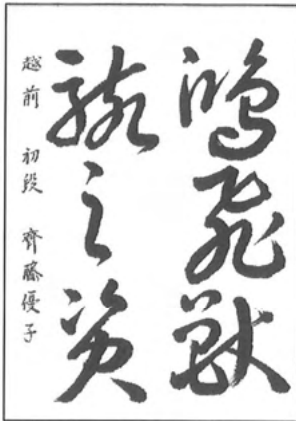 鴻飛獣
駭之資
越前 初段 齊藤優子